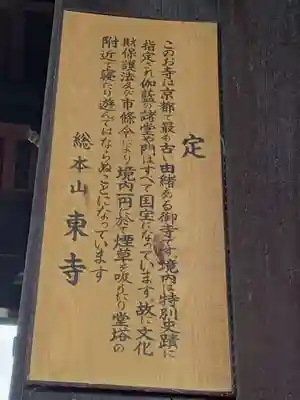 定
このお寺は京都で最も古い由緒ある御寺です。境内は特別史蹟に
指定され伽藍の諸堂や門はすべて国宝になっています。故に文化
財保護法及び市條令により境内一円に於て煙草を吸ったり堂塔の
附近で寝たり遊んではならぬことになっています
総本山 東寺